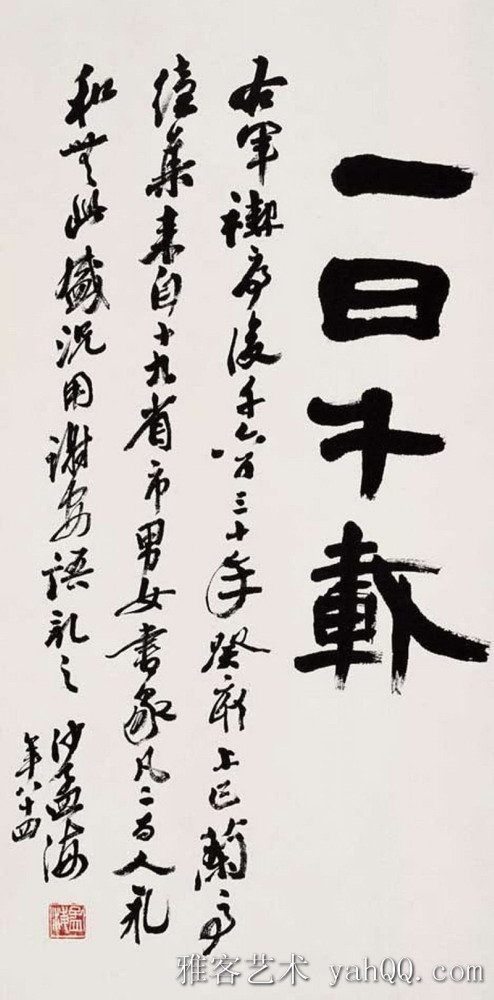 一日千載
右軍禊序後千六百三十年癸亥上巳蘭亭
續集來自十九省市男女書家凡二百人永
和無此盛況用謝安語記之
沙孟海
年八十四
孟海
雅客艺术 yahQQ.com